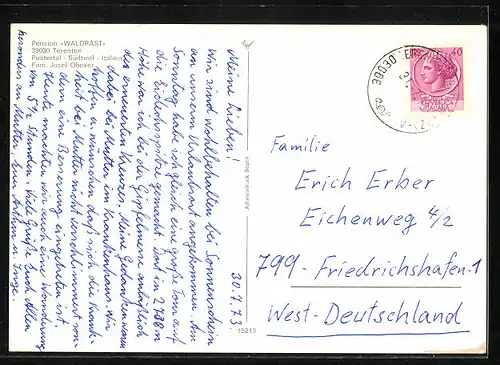 Pension «WALDRAST»
39030 Terenten
Pustertal - Südtirol - Italien
Fam. Josef Obexer
30.7.73
Meine Lieben!
Wir sind wohlbehalten bei Sonnenschein
an unserem Urlaubsort angekommen. Am
Sonntag habe ich gleich eine große Tour auf
die Eidechsspitze gemacht. Dort in 2738 m
Höhe war ich bei der Gipfelmesse anläßlich
des erneuerten Kreuzes. Meine Gedanken waren
dabei bei Mutter im Krankenhaus. Wir
hoffen u. wünschen daß sich die Krank-
heit bei Mutter nicht verschlimmert son-
dern eine Besserung eingetreten ist.
Heute machten wir auch eine Wanderung
von 5½ Stunden. Viele Grüße Euch allen
besonders an Mutter, Eure Anton u. Inge.
15213
39030
40
Familie
Erich Erber
Eichenweg 4/2
799-Friedrichshafen-1
West-Deutschland